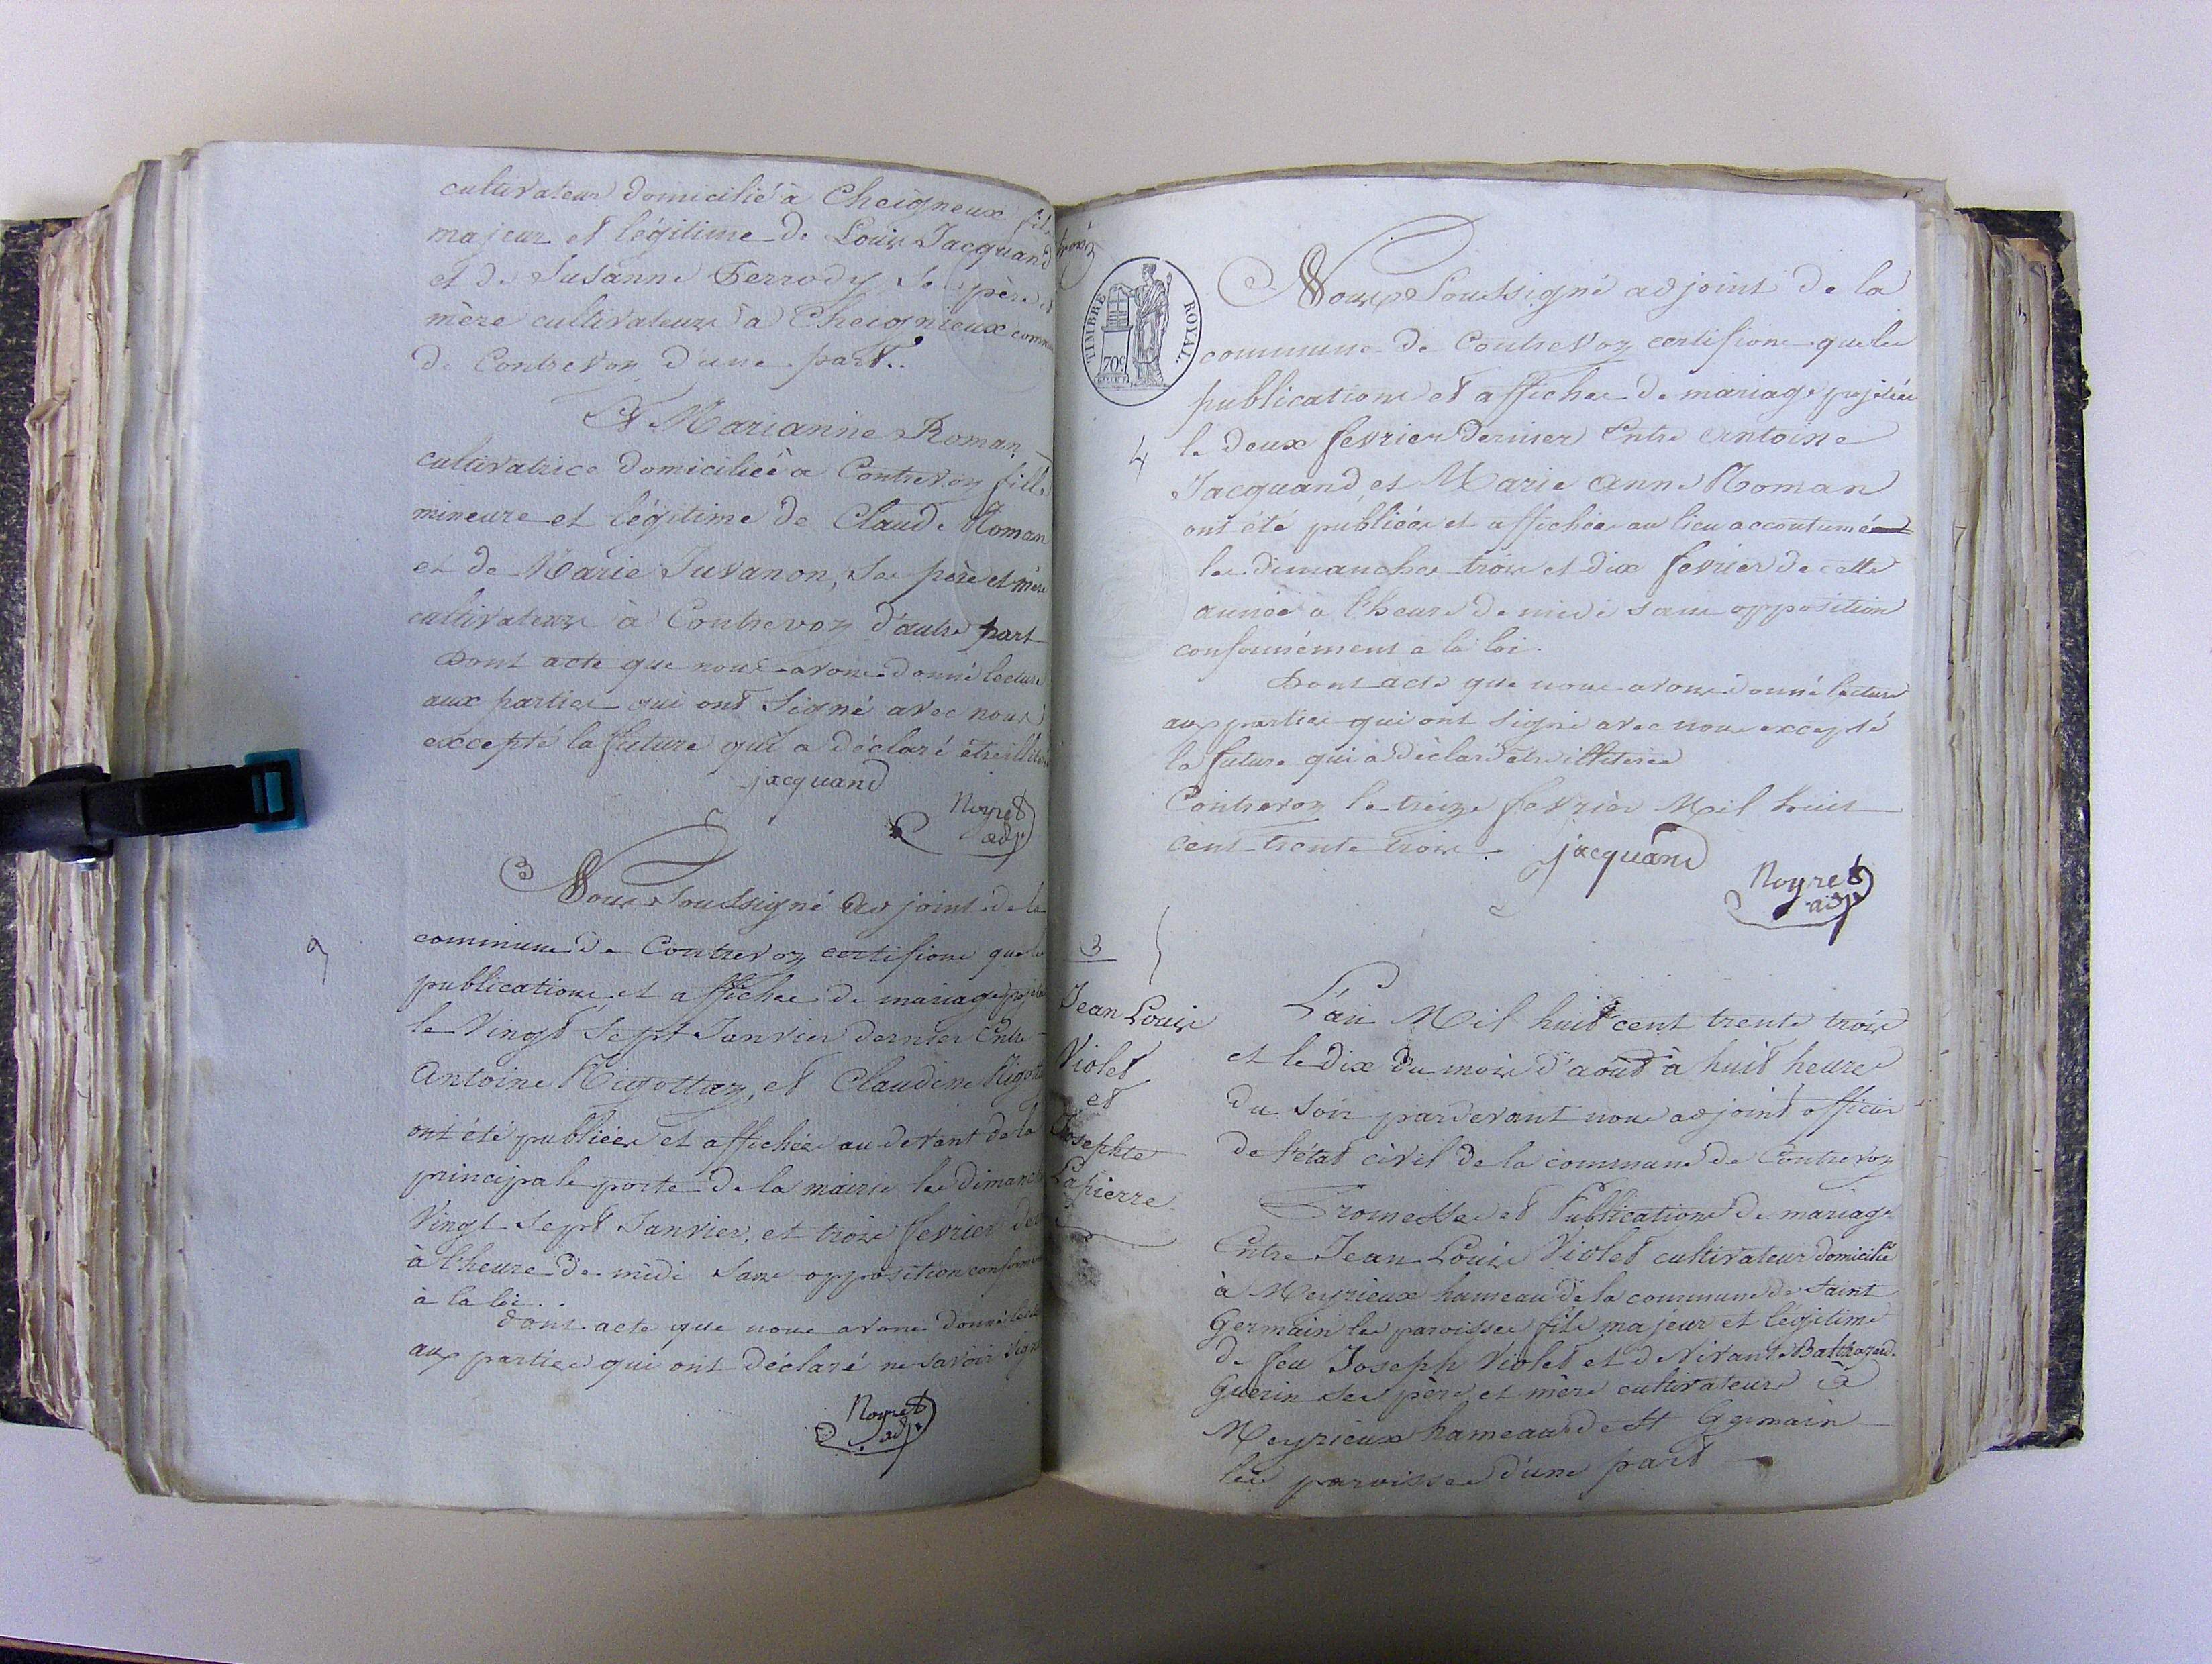 cultivateur domicilié à Cheigneux fils
majeur et légitime de Louis Jacquand
et de Susanne Ferrody Se père et
mère cultivateurs à Cheignieux commune
de Contrevoz d'une part..
Et Marianne Roman
cultivatrice domiciliée a Contrevoz fille
mineure et légitime de Claude Roman
et de Marie Juvanon, Ses père et mère
cultivateurs à Contrevoz d'autre part
Dont acte que nous avons donné lecture
aux parties qui ont Signé avec nous
excepté la future qui a déclaré être
jacquand
Noyret
adjt
Nous Soussigné adjoint de la
commune de Contrevoz certifions que les
publications et affiches de mariage
le Vingt Sept Janvier dernier Entre
Antoine Rigottaz, et Claudine
ont été publiées et affichées au devant de la
principale porte de la mairie les dimanche
Vingt Sept Janvier, et trois fevrier
à l'heure de midi Sans opposition
à la loi..
Dont acte que nous avons donné
aux parties qui ont déclaré ne savoir signer
Noyret
adjt
TIMBRE ROYAL.
70c
4
Nous Soussigné adjoint de la
commune de Contrevoz certifions que les
publications et affiches de mariage projetées
le deux fevrier dernier Entre Antoine
Jacquand et Marie Anne Roman
ont été publiées et affichées au lieu accoutumé
les dimanches trois et dix fevrier de cette
année à l'heure de midi sans opposition
conformément a la loi.
Dont acte que nous avons donné lecture
aux parties qui ont signé avec nous excepté
la future qui a déclaré être illitérée
Contrevoz le treize fevrier Mil huit
cent trente trois. jacquand
Noyret
adjt
3
Jean Louis
Violet
et
Josephte
Lapierre
L'an Mil huit cent trente trois
et le dix du mois d'août à huit heures
du soir pardevant nous adjoint officier
de l'état civil de la commune de Contrevoz
Promesses et Publications de mariage
Entre Jean Louis Violet cultivateur domicilié
à Meyrieux hameau de la commune de Saint
Germain les paroisses fils majeur et légitime
de feu Joseph Violet et de Vivante
Guerin Ses père et mère cultivateurs à
Meyrieux hameau de St Germain
les paroisses d'une part